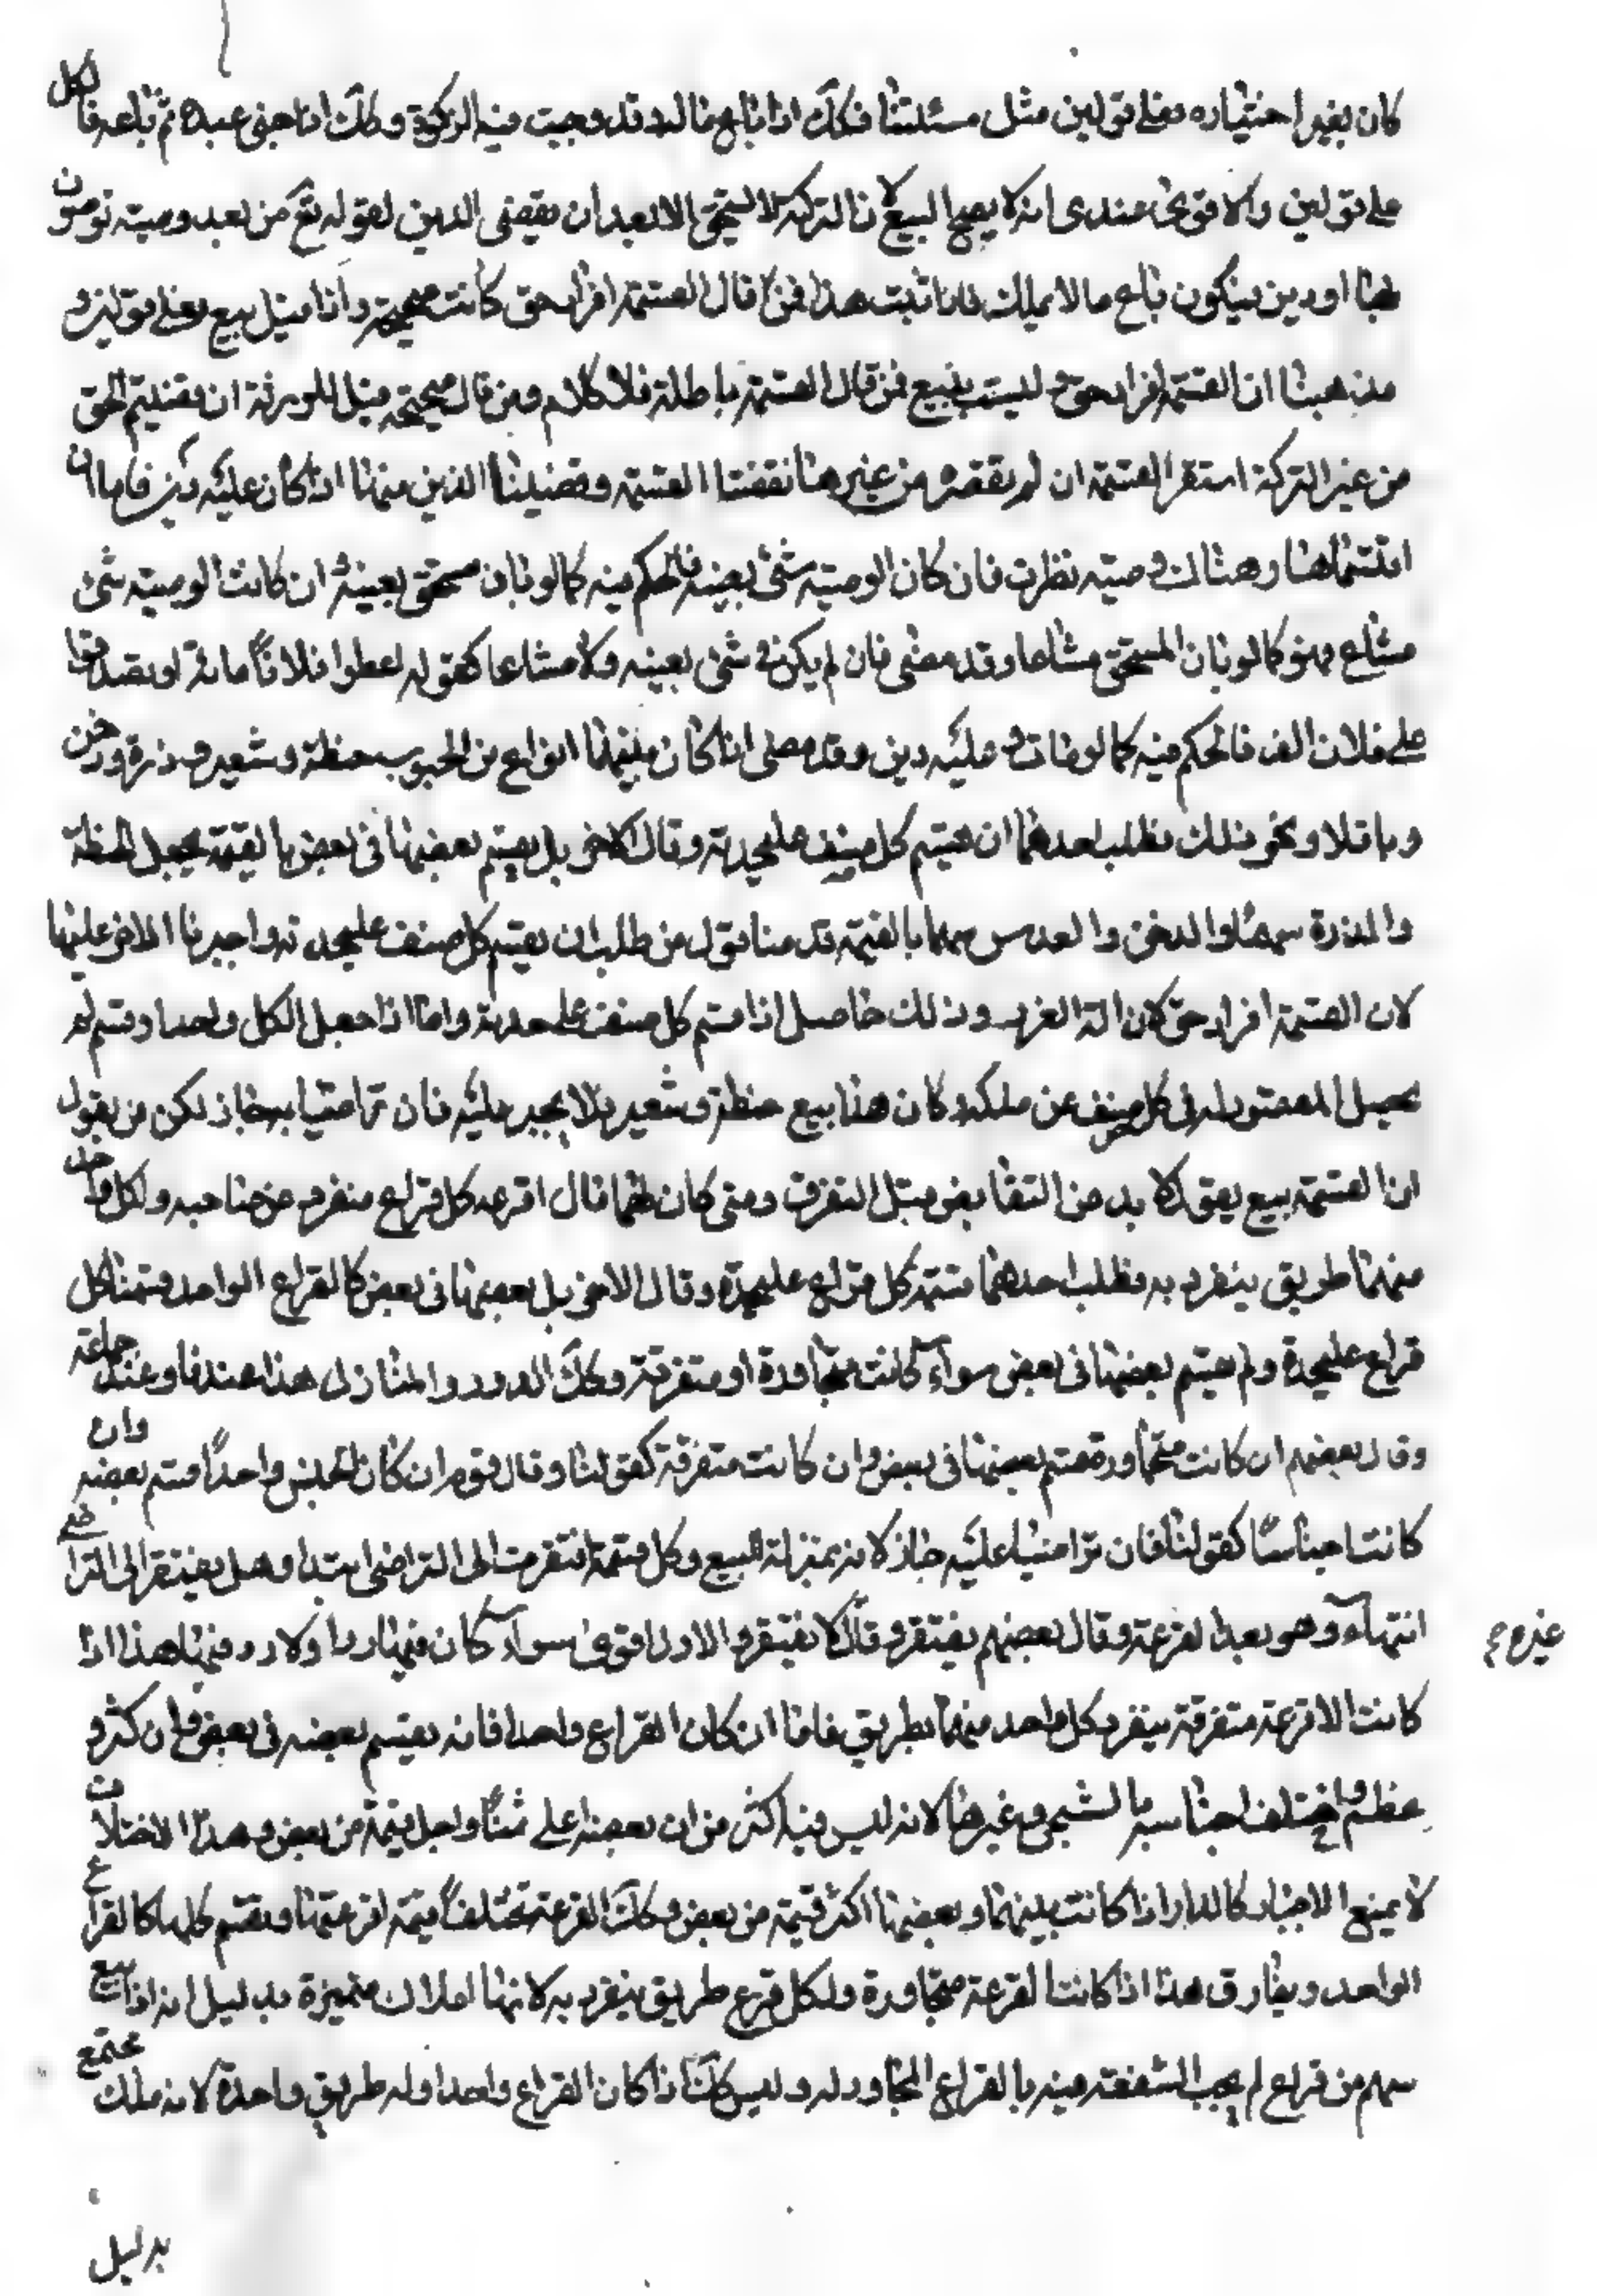 كان بغير اختياره فعلى قولين مثل مسئلتنا فكك اذا باع ماله وقد وجبت فيه الزكوة وكك اذا جنى عبده ثم باعه فالكل
على قولين والاقوى عندى انه لا يصح البيع لان التركة لا تستحق الا بعد ان يقضى الدين لقوله تع من بعد وصية توصون
بها او دين فيكون باع مالا يملك فاذا ثبت هذا فمن قال القسمة افراز حق كانت صحيحة واذا قيل بيع فعلى قولين و
مذهبنا ان القسمة افراز حق وليست ببيع فمن قال القسمة باطلة فلا كلام ومن قال صحيحة قيل للورثة ان قضيتم الحق
من غير التركة استقر القسمة ان لم يقضوه من غيرها نقضنا القسمة وقضينا الدين منها اذا كان عليه دين فاما ان
اقتسماها وهناك وصية نظرت فان كان الوصية بشئ بعينه فالحكم فيه كما لو بان مستحق بعينه وان كانت الوصية بشئ
مشاع فهو كما لو بان المستحق مشاعا وقد مضى فان لم يكن في شئ بعينه ولا مشاعا كقوله اعطوا فلانا مائة او تصدقوا
على فلان الف فالحكم فيه كما لو مات وعليه دين وقد مضى اذا كان بينهما انواع من الحبوب حنطة وشعير وذرة ودخن
وباقلا ونحو ذلك فطلب احدهما ان يقتسم كل صنف عليحدته وقال الاخر بل يقسم بعضها فى بعض بالقيمة يجعل الحنطة
والذرة سهما والدخن والعدس سهما بالقيمة قدمنا قول من طلب ان يقسم كل صنف عليحدته واجبرنا الاخر عليها
لان القسمة افراز حق لازالة الضرر وذلك حاصل اذا قسم كل صنف على حدته واما اذا جعل الكل واحدا وقسم لم
يحصل المقصود له فى كل صنف عن ملكه وكان هذا بيع حنطة وشعير فلا يجبر عليه فان تراضيا به جاز لكن من يقول
ان القسمة بيع يقول لا بد من التقابض قبل التفرق ومتى كان لهما قال اقرعه كل قراح منفرد عن صاحبه ولكل واحد
منهما طريق ينفرد به فطلب احدهما قسمة كل قراح عليحدة وقال الاخر بل بعضها فى بعض كالقراح الواحد قسمنا كل
قراح عليحدة ولم يقسم بعضها فى بعض سواء كانت متجاورة او متفرقة وكك الدور والمنازل هذا عندنا وعند جماعة
وقال بعضهم ان كانت متجاورة قسم بعضها فى بعض وان كانت متفرقة كقولنا وقال قوم ان كان الجنس واحدا قسم بعضه وان
كانت اجناسا كقولنا فان تراضيا عليه جاز لانه بمنزلة البيع وكل قسمة افتقرت الى التراضى ابتداء وهل يفتقر الى التراضى
انتهاء وهو بعد القرعة وقال بعضهم يفتقر وقال لا يفتقر والاول اقوى سواء كان فيها رد او لا رد فيها هذا اذا
كانت الاقرعة متفرقة ينفرد كل واحد منهما بطريق فاما ان كان القراح واحدا فانه يقسم بعضه فى بعض وان كثر و
عظم واختلف اجناسه بالشجر وغيرها لانه ليس فيه اكثر من ان بعضه اعلى ثمنا واجل قيمة من بعض وهذا الاختلاف
لا يمنع الاجبار كالدار اذا كانت بينهما وبعضها اكثر قيمة من بعض وكك القرعة تختلف قيمة اقرعتها ويقسم كلها كالقراح
الواحد ويفارق هذا اذا كانت القرعة متجاورة ولكل قرح طريق ينفرد به لانها املاك متميزة بدليل انه اذا بيع
سهم من قراح لم يجب الشفعة فيه بالقراح المجاور له وليس كك اذا كان القراح واحدا وله طريق واحدة لانه ملك مجتمع
بدليل